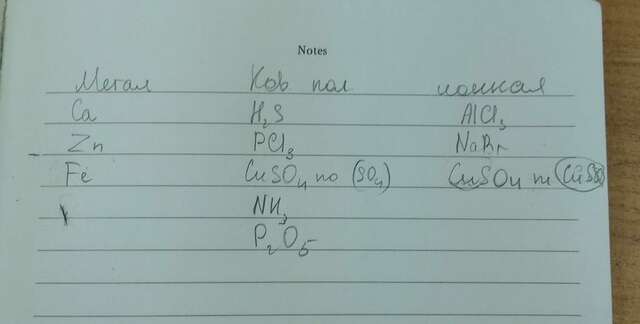 Notes
Метал Ков пол ионная
Ca H₂S AlCl₃
Zn PCl₃ NaBr
Fe CuSO₄ по (SO₄) CuSO₄
NH₃
P₂O₅